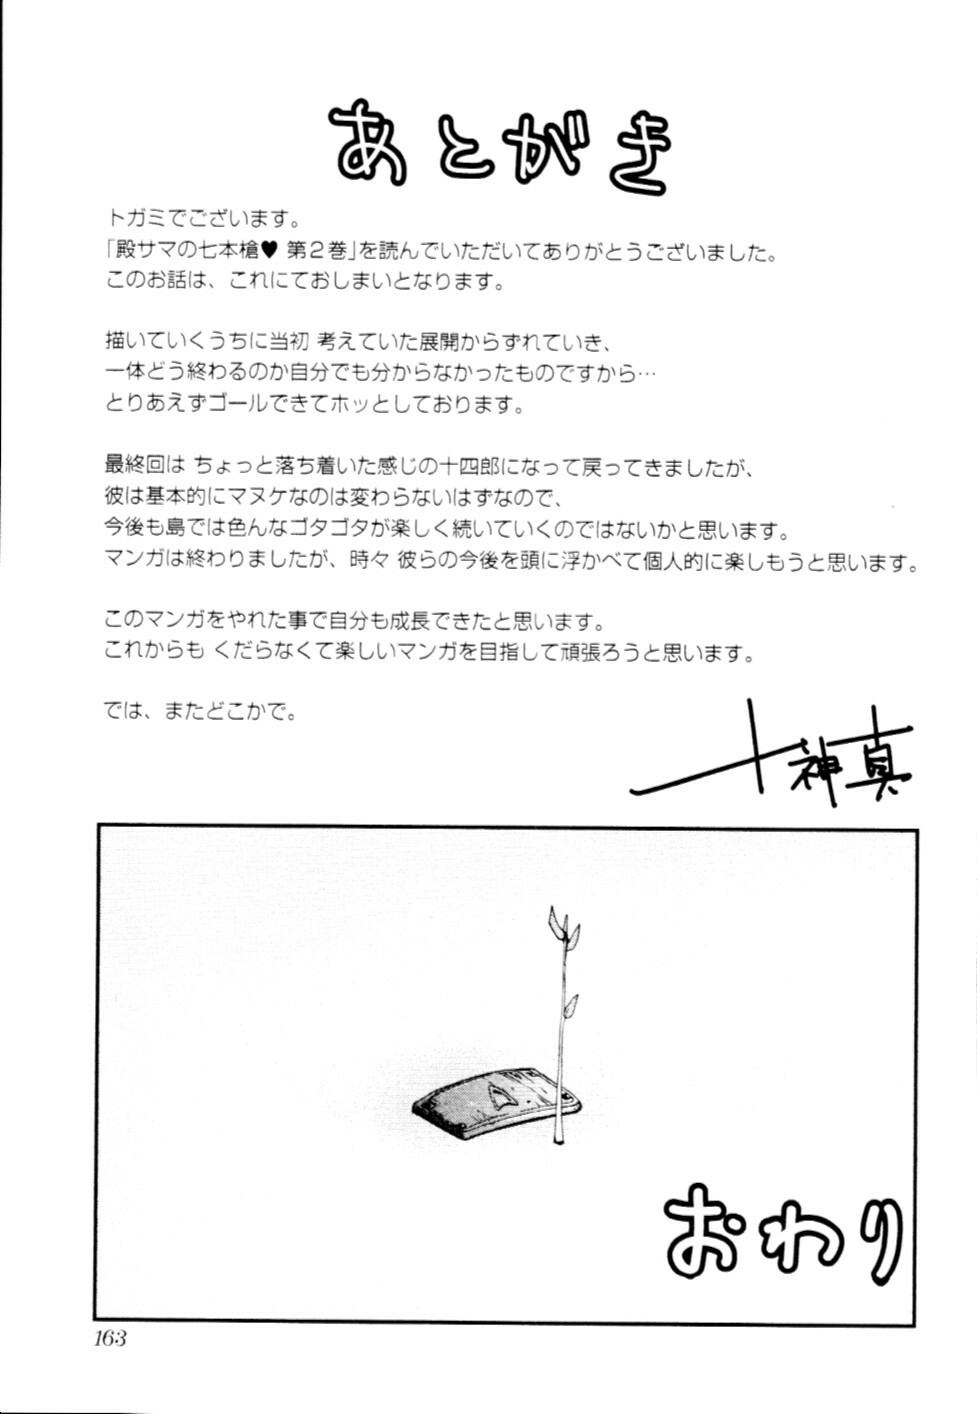 あとがき
トガミでございます。
「殿サマの七本槍♥ 第２巻」を読んでいただいてありがとうございました。
このお話は、これにておしまいとなります。
描いていくうちに当初 考えていた展開からずれていき、
一体どう終わるのか自分でも分からなかったものですから…
とりあえずゴールできてホッとしております。
最終回は ちょっと落ち着いた感じの十四郎になって戻ってきましたが、
彼は基本的にマヌケなのは変わらないはずなので、
今後も島では色んなゴタゴタが楽しく続いていくのではないかと思います。
マンガは終わりましたが、時々 彼らの今後を頭に浮かべて個人的に楽しもうと思います。
このマンガをやれた事で自分も成長できたと思います。
これからも くだらなくて楽しいマンガを目指して頑張ろうと思います。
では、またどこかで。
十神真
おわり
163